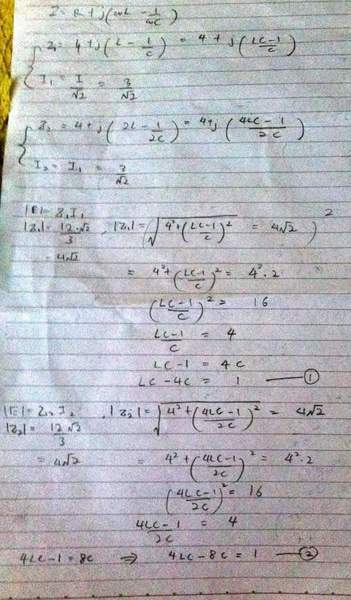 Z = R + j(ωL - 1/ωC)
Z₁ = 4 + j(L - 1/C) = 4 + j(LC-1/C)
I₁ = I/√2 = 3/√2
Z₂ = 4 + j(2L - 1/2C) = 4+j(4LC-1/2C)
I₂ = I₁ = 3/√2
|E| = Z₁I₁
|Z₁| = 12·√2/3 , |Z₁| = √(4² + (LC-1/C)²) = 4√2 )²
= 4√2
= 4² + (LC-1/C)² = 4².2
(LC-1/C)² = 16
LC-1/C = 4
LC - 1 = 4C
LC - 4C = 1 — ①
|E| = Z₂I₂ , |Z₂| = √(4² + (4LC-1/2C)²) = 4√2
|Z₂| = 12√2/3
= 4√2 = 4² + (4LC-1/2C)² = 4².2
(4LC-1/2C)² = 16
4LC-1/2C = 4
4LC-1 = 8C ⇒ 4LC - 8C = 1 — ②